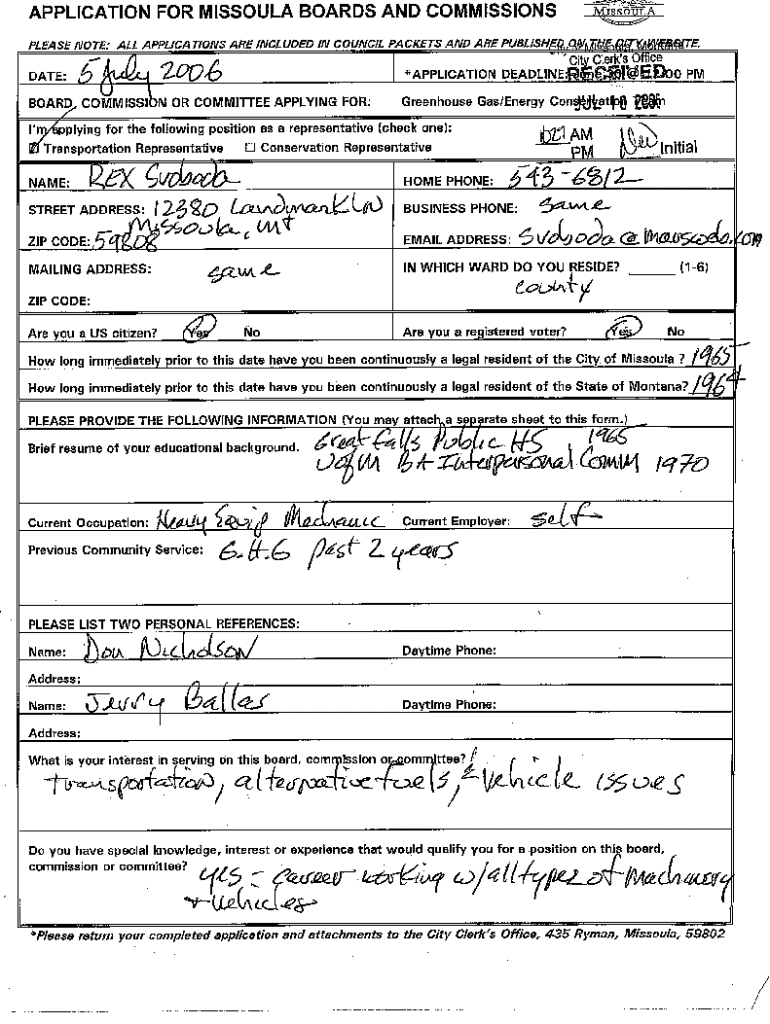 APPLICATION FOR MISSOULA BOARDS AND COMMISSIONS
MISSOULA
PLEASE NOTE: ALL APPLICATIONS ARE INCLUDED IN COUNCIL PACKETS AND ARE PUBLISHED ON THE CITY WEBSITE.
City Clerk's Office
DATE: 5 July 2006
*APPLICATION DEADLINE: RECEIVED 00 PM
BOARD, COMMISSION OR COMMITTEE APPLYING FOR: Greenhouse Gas/Energy Conservation Team
I'm applying for the following position as a representative (check one):
Transportation Representative Conservation Representative
AM
PM
New Initial
NAME: REX Svoboda
HOME PHONE: 543-6812
STREET ADDRESS: 12380 Landmark LN
Missoula, MT
BUSINESS PHONE: same
ZIP CODE: 59808
EMAIL ADDRESS: Svoboda@marscoda.com
MAILING ADDRESS: same
IN WHICH WARD DO YOU RESIDE? (1-6)
county
ZIP CODE:
Are you a US citizen? Yes No
Are you a registered voter? Yes No
How long immediately prior to this date have you been continuously a legal resident of the City of Missoula ? 1965
How long immediately prior to this date have you been continuously a legal resident of the State of Montana? 1964
PLEASE PROVIDE THE FOLLOWING INFORMATION (You may attach a separate sheet to this form.)
Brief resume of your educational background. Great Falls Public HS 1965
U of M BA Interpersonal Comm 1970
Current Occupation: Heavy Equip Mechanic Current Employer: self
Previous Community Service: G.H.G past 2 years
PLEASE LIST TWO PERSONAL REFERENCES:
Name: Don Nicholson Daytime Phone:
Address:
Name: Jerry Ballas Daytime Phone:
Address:
What is your interest in serving on this board, commission or committee?
transportation, alternative fuels, & vehicle issues
Do you have special knowledge, interest or experience that would qualify you for a position on this board,
commission or committee? yes - career working w/ all types of machinery
+ vehicles
*Please return your completed application and attachments to the City Clerk's Office, 435 Ryman, Missoula, 59802